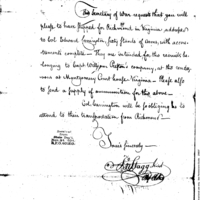 The Secretary of War requests that you will
please to have shipped for Richmond in Virginia addressed
to Col Edward Carrington, forty stands of arms, with accou-
trements complete - They are intended for the recruits be-
longing to Capt William Preston's company, at the rendez
vous at Montgomery Court house Virginia - Please also
to send a supply of ammunition for the above -
Col. Carrington will be so obliging as to
attend to their transportation from Richmond -
Yours sincerely -
Jno Stagg Junr